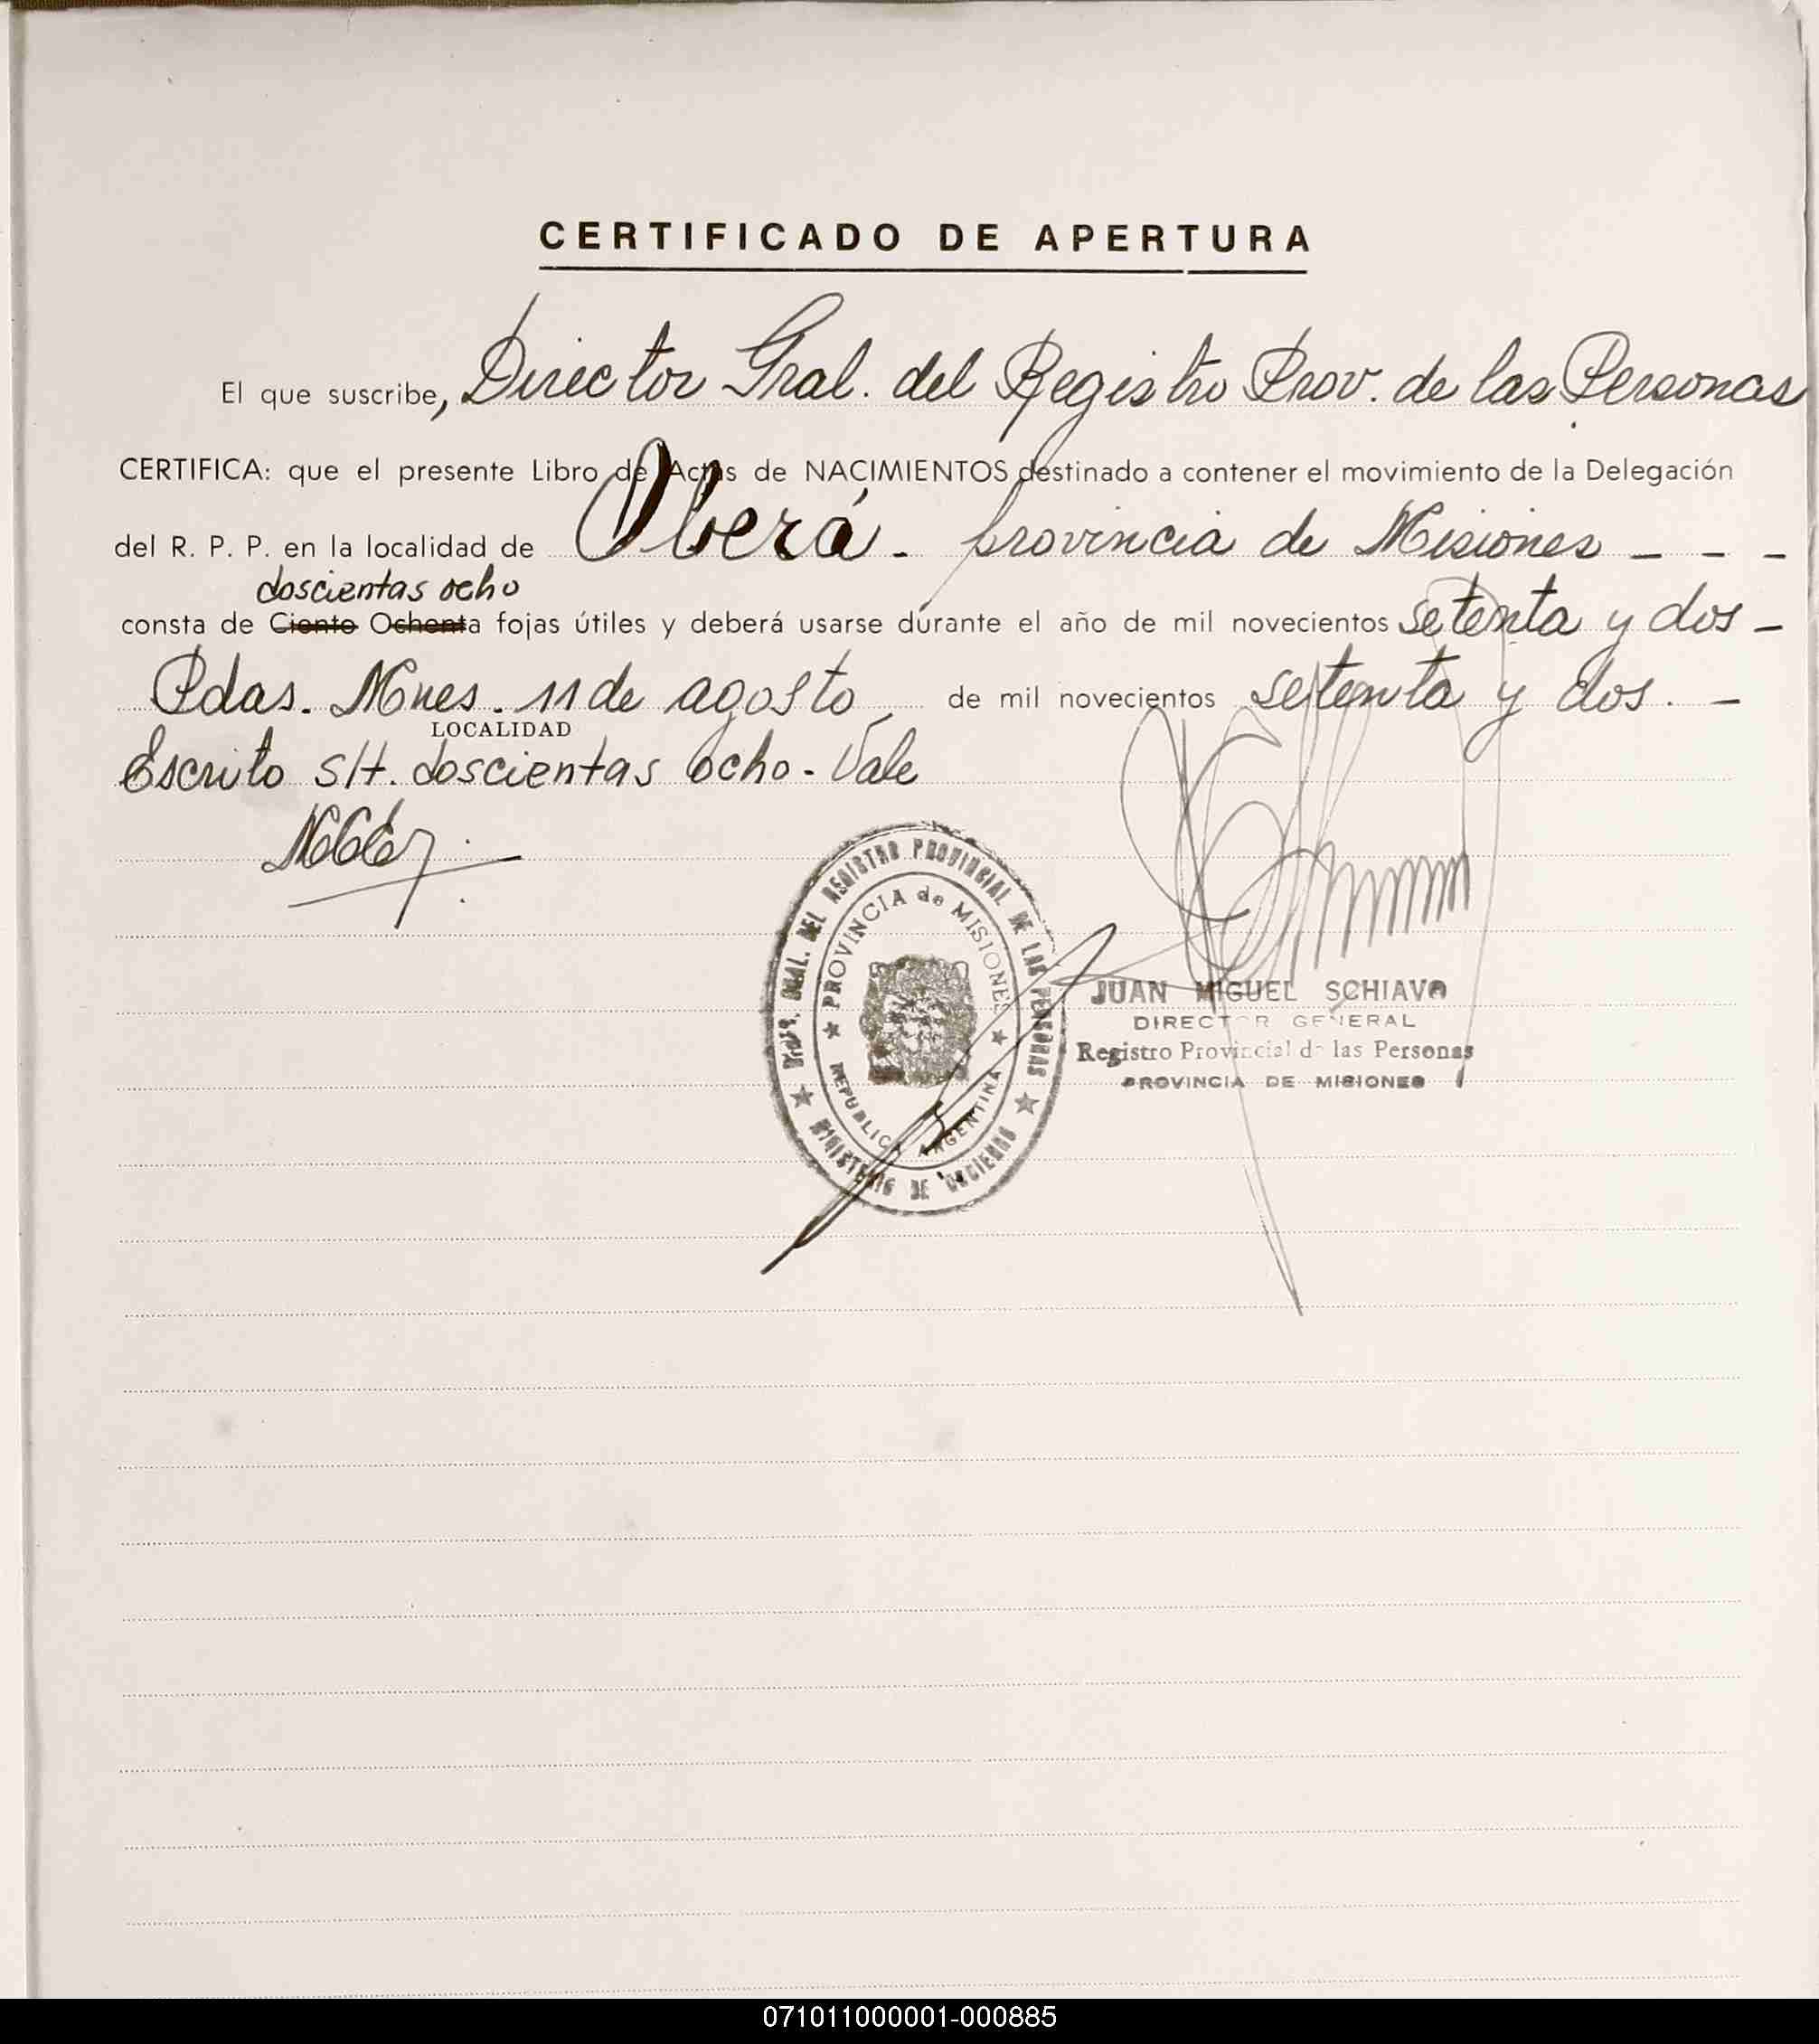 CERTIFICADO DE APERTURA
El que suscribe, Director Gral. del Registro Prov. de las Personas
CERTIFICA: que el presente Libro de Actas de NACIMIENTOS destinado a contener el movimiento de la Delegación
del R. P. P. en la localidad de Oberá - provincia de Misiones - - -
doscientas ocho
consta de Ciento Ochenta fojas útiles y deberá usarse durante el año de mil novecientos setenta y dos -
Pdas. Mnes. 11 de agosto de mil novecientos setenta y dos. -
LOCALIDAD
Escrito s/t. doscientas ocho - Vale
DEL REGISTRO PROVINCIAL DE LAS PERSONAS
PROVINCIA de MISIONES
REPUBLICA ARGENTINA
MINISTERIO DE GOBIERNO
JUAN MIGUEL SCHIAVO
DIRECTOR GENERAL
Registro Provincial de las Personas
PROVINCIA DE MISIONES
071011000001-000885